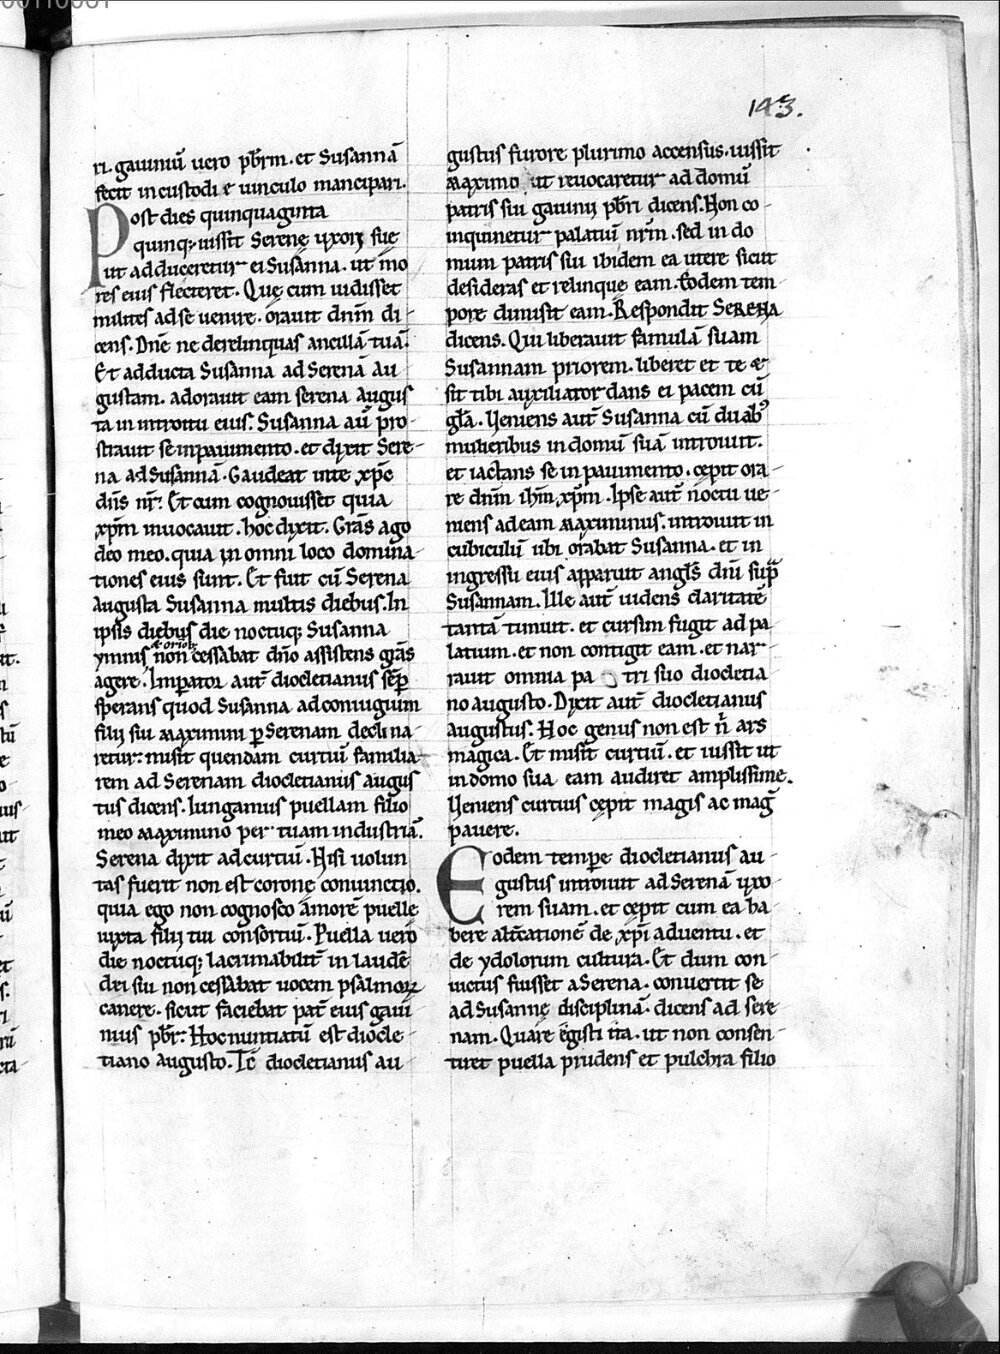 143.
ri. gauiniū uero pb̄rm. et Susannā
fecit in custodi ę uinculo mancipari.
Post dies quinquaginta
quinq; iussit Serenę uxori suę
ut adduceretur ei Susanna. ut mo
res eius flecteret. Quę cum uidisset
milites ad se uenire. orauit dn̄m di-
cens. Dn̄e ne derelinquas ancillā tuā.
Et adducta Susanna ad Serenā au
gustam. adorauit eam serena augus
ta in introitu eius. Susanna aū pro-
strauit se in pauimento. et dixit Sere-
na ad Susannā. Gaudeat in te xp̄c
dn̄s nr̄. Et cum cognouisset quia
xp̄m inuocauit. hoc dixit. Grās ago
deo meo. quia in omni loco domina-
tiones eius sunt. Et fuit cū Serena
augusta Susanna multis diebus. In
ipsis diebus die noctuq; Susanna
ymnis & oriob; non cessabat dn̄o assistens grās
agere. Imperator aut̄ diocletianus sēp
sperans quod Susanna ad coniugium
filii sui maximini p Serenam declina-
retur: misit quendam curtiū familia-
rem ad Serenam diocletianus augus
tus dicens. Iungamus puellam filio
meo maximino per tuam industriā.
Serena dixit ad curtiū. Nisi uolun
tas fuerit non est coronę coniunctio.
quia ego non cognosco amorē puellę
iuxta filii tui consortiū. Puella uero
die noctuq; lacrimabilit̄ in laudē
dei sui non cessabat uocem psalmorꝝ
canere. sicut faciebat pat̄ eius gaui
nius pb̄r. Hoc nuntiatū est diocle-
tiano augusto. Tc̄ diocletianus au
gustus furore plurimo accensus. iussit
maximo ut reuocaretur ad domū
patris sui gauinii pb̄ri dicens. Non co-
inquinetur palatiū nr̄m. sed in do
mum patris sui ibidem ea utere sicut
desideras et relinque eam. Eodem tem
pore dimisit eam. Respondit SERENA
dicens. Qui liberauit famulā suam
Susannam priorem. liberet et te &
sit tibi auxiliator dans ei pacem cū
gl̄a. Ueniens aut̄ Susanna cū duab;
mulieribus in domū suā introiuit.
et iactans se in pauimento. cępit ora-
re dn̄m ih̄m xp̄m. Ipse aut̄ noctu ue-
niens ad eam maximinus. introiuit in
cubiculū ubi orabat Susanna. et in
ingressu eius apparuit angl̄s dn̄i sup̄
Susannam. Ille aut̄ uidens claritatē
tantā timuit. et cursim fugit ad pa-
latium. et non contigit eam. et nar-
rauit omnia pa tri suo diocletia-
no augusto. Dixit aut̄ diocletianus
augustus. Hoc genus non est n̄ ars
magica. Et misit curtiū. et iussit ut
in domo sua eam audiret amplissime.
Ueniens curtius cępit magis ac maḡ
pauere.
Eodem tempore diocletianus au-
gustus introiuit ad Serenā uxo-
rem suam. et cępit cum ea ha-
bere alt̄cationē de xp̄i aduentu. et
de ydolorum cultura. Et dum con-
uictus fuisset a Serena. conuertit se
ad Susannę disciplinā. dicens ad sere-
nam. Quare egisti ita. ut non consen-
tiret puella prudens et pulchra filio